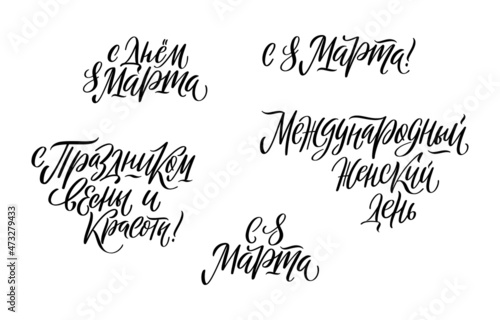 с Днём
8 Марта
С 8 Марта!
с Праздником
весны и
Красоты!
Международный
Женский
день
С 8
Марта
Adobe Stock | #473279433